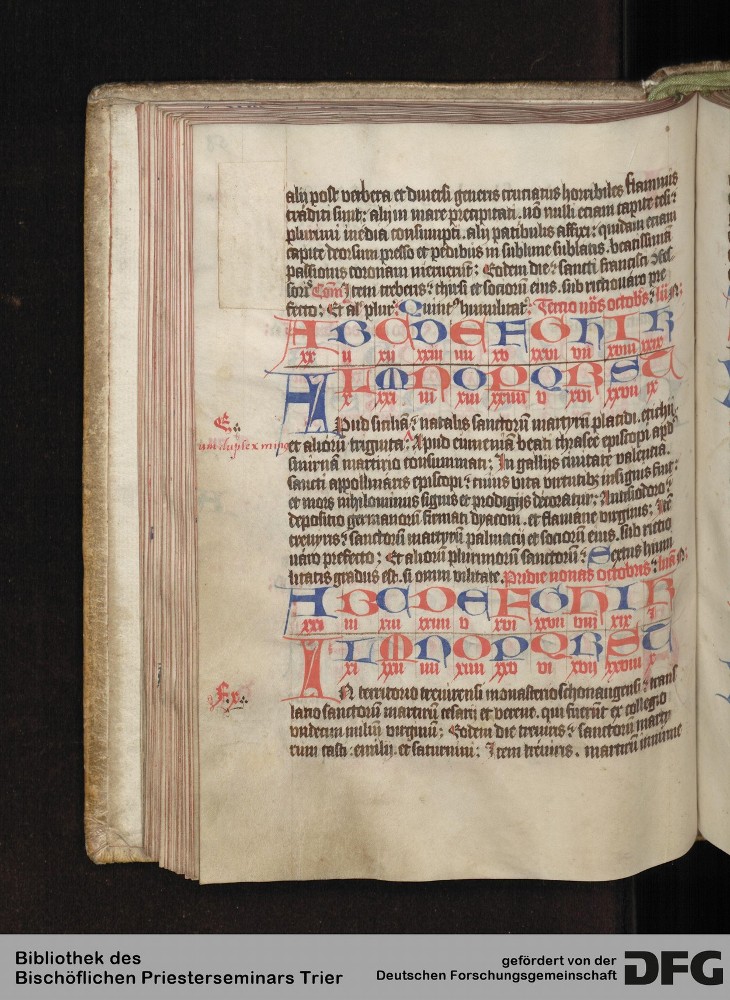 alij post verbera et diuersi generis cruciatus horribiles flammis
traditi sunt: alij in mare precipitati. nō nulli etiam capite cesi:
plurimi inedia consumpti. alij patibulis affixi: quidam etiam
capite deorsum presso et pedibus in sublime sublatis. beatissimā
passionis coronam meruerūt: Eodem die: sancti francisci ꝯfes
soris Item treberis: thirsi et sociorū eius. sub richouaro pre
fecto: Et al plur: Quintꝰ humilitat: Tercio nōs octobs: lūn:
A B C D E F G H I K
xx ii xii xxiii iiii xv xxvi vii xviii xxix
L M N O P Q R S T
x xxi iii xiii xxiiii v xvi xxvii ix
E
Apud siciliā: natalis sanctorum martyrū placidi. eutichij.
et aliorū triginta: Apud eumeniā beati thrasee episcopi apd
smirnam martirio consummati: In gallijs ciuitate valentia.
sancti appollinaris episcopi: cuius vita virtutibꝫ insignis fuit:
et mors nihilominus signis et prodigijs decoratur: Antisiodoro:
depositio germanorū firmati dyaconi. et flauiane virginis: Itē
treueris: sanctorū martyrū palmacij et sociorū eius. sub rictio
uaro prefecto: Et aliorū plurimorū sanctorū: Sextus humi
litatis gradus est. si omni vilitate. Pridie nonas octobris: lunā:
A B C D E F G H I K
xxi iii xiii xxiiii v xvi xxvii viii xix
L M N O P Q R S T
xi xxii iiii xiiii xxv vi xvii xxviii x
F
In territorio treuirensi monasterio schonaugensi: trans
latio sanctorū martirū cesarij et verene. qui fuerūt ex collegio
vndecim miliū virginū: Eodem die treuiris: sanctorū marty
rum casti. emilij. et saturnini: Item treuiris. martirū innume
Bibliothek des
Bischöflichen Priesterseminars Trier
gefördert von der
Deutschen Forschungsgemeinschaft
DFG